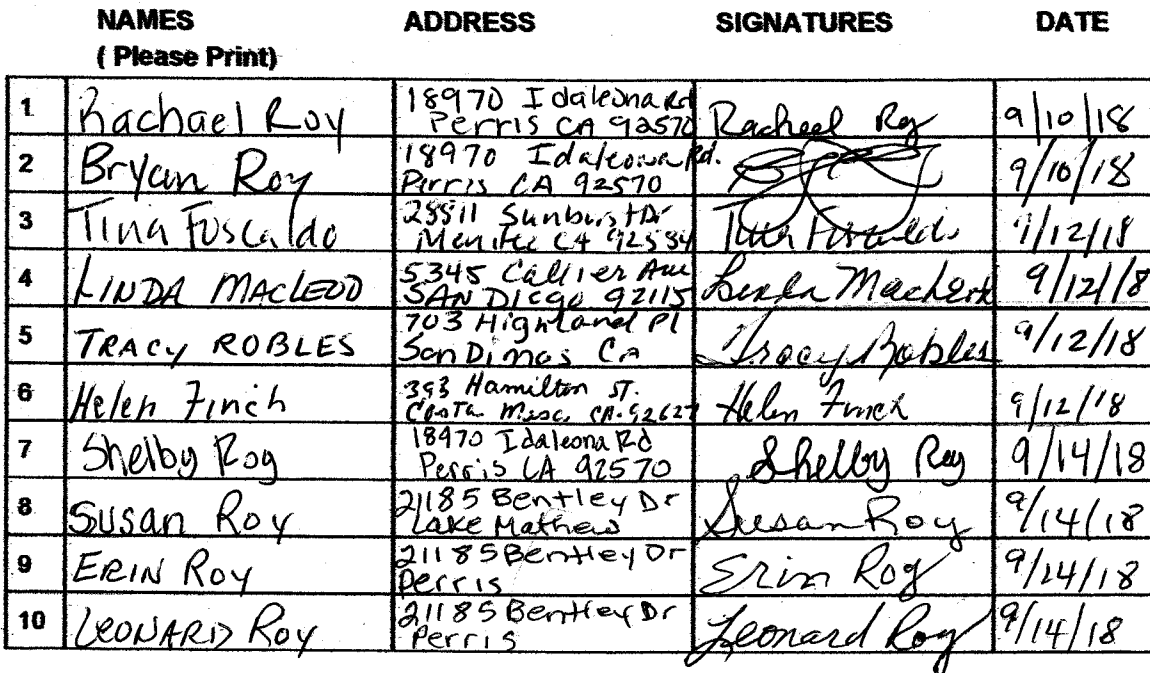 NAMES ADDRESS SIGNATURES DATE
( Please Print)
1 Rachael Roy 18970 Idaleona Rd Perris CA 92570 Rachael Roy 9/10/18
2 Bryan Roy 18970 Idaleona Rd. Perris CA 92570 9/10/18
3 Tina Fuscaldo Sunburst Dr Menifee CA Tina Fuscaldo 9/12/18
4 LINDA MACLEOD 5345 Collier Ave SAN Diego 92115 Linda MacLeod 9/12/18
5 TRACY ROBLES 703 Highland Pl San Dimas CA Tracy Robles 9/12/18
6 Helen Finch 393 Hamilton ST. Costa Mesa, CA. 92627 Helen Finch 9/12/18
7 Shelby Roy 18970 Idaleona Rd Perris CA 92570 Shelby Roy 9/14/18
8 Susan Roy 21185 Bentley Dr Lake Mathews Susan Roy 9/14/18
9 ERIN ROY 21185 Bentley Dr Perris Erin Roy 9/14/18
10 LEONARD ROY 21185 Bentley Dr Perris Leonard Roy 9/14/18